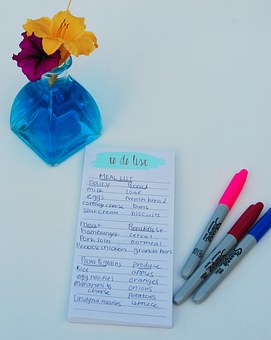 to do list
MEAL LIST
DAIRY Bread
milk loaf
eggs french bread
cottage cheese buns
sour cream biscuits
Meat Breakfast
hamburger cereal
Pork loin oatmeal
granola bars
produce
Rice apples
egg noodles oranges
macaroni & onions
cheese potatoes
noodles lettuce
Sharpie